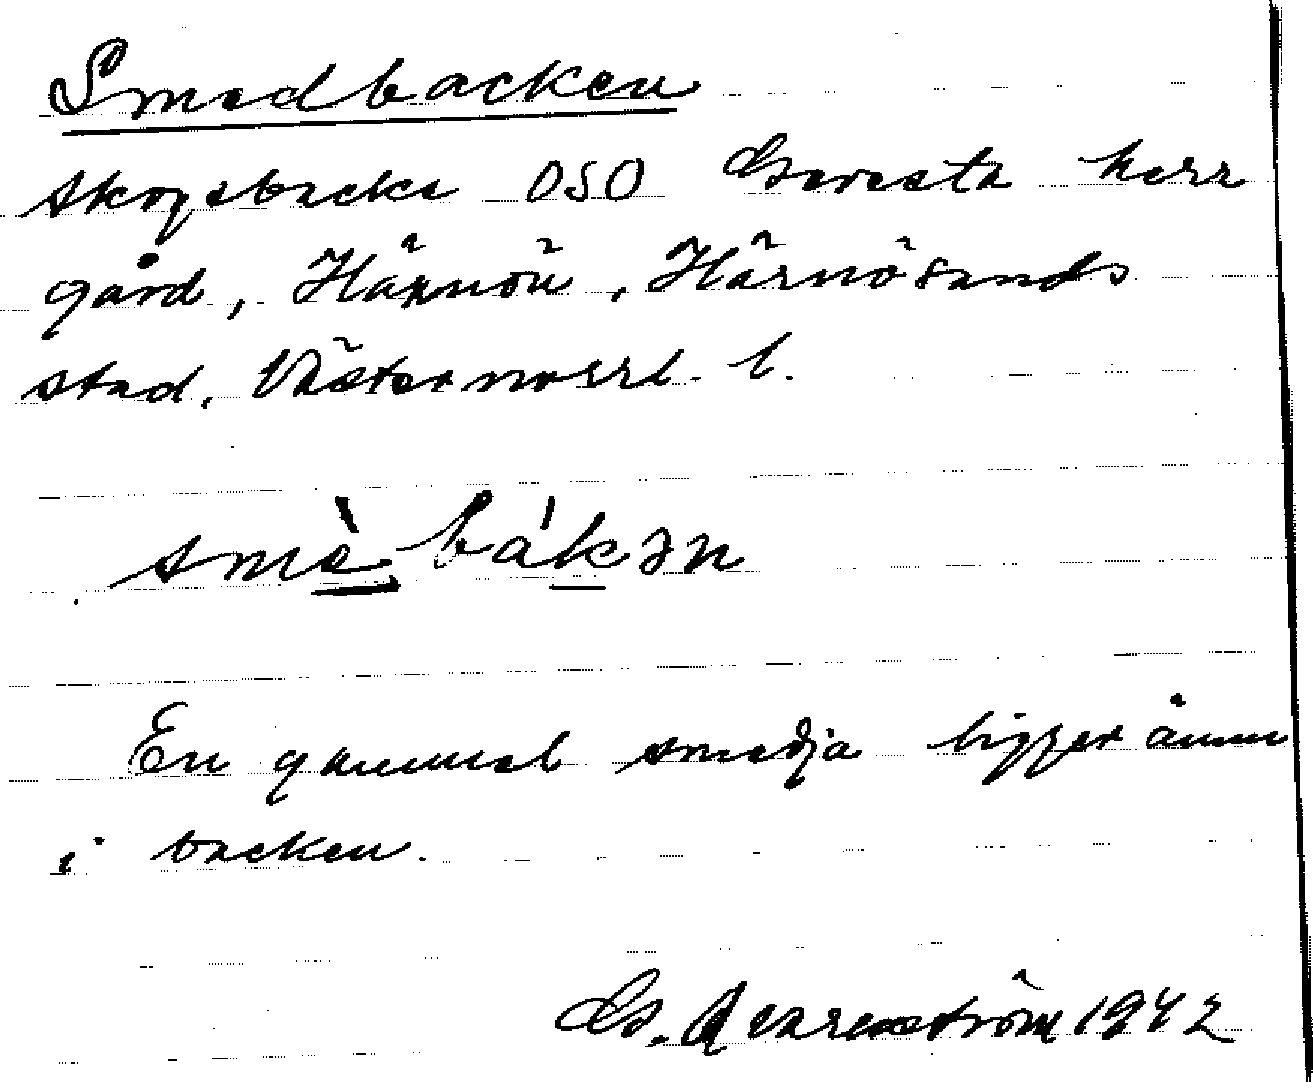 Smedbacken
skogsbacke OSO Geresta herr
gård, Härnön, Härnösands
stad, Västernorrl. l.
smè bákən
En gammal smedja ligger ännu
i backen.
G. Qvarnström 1942